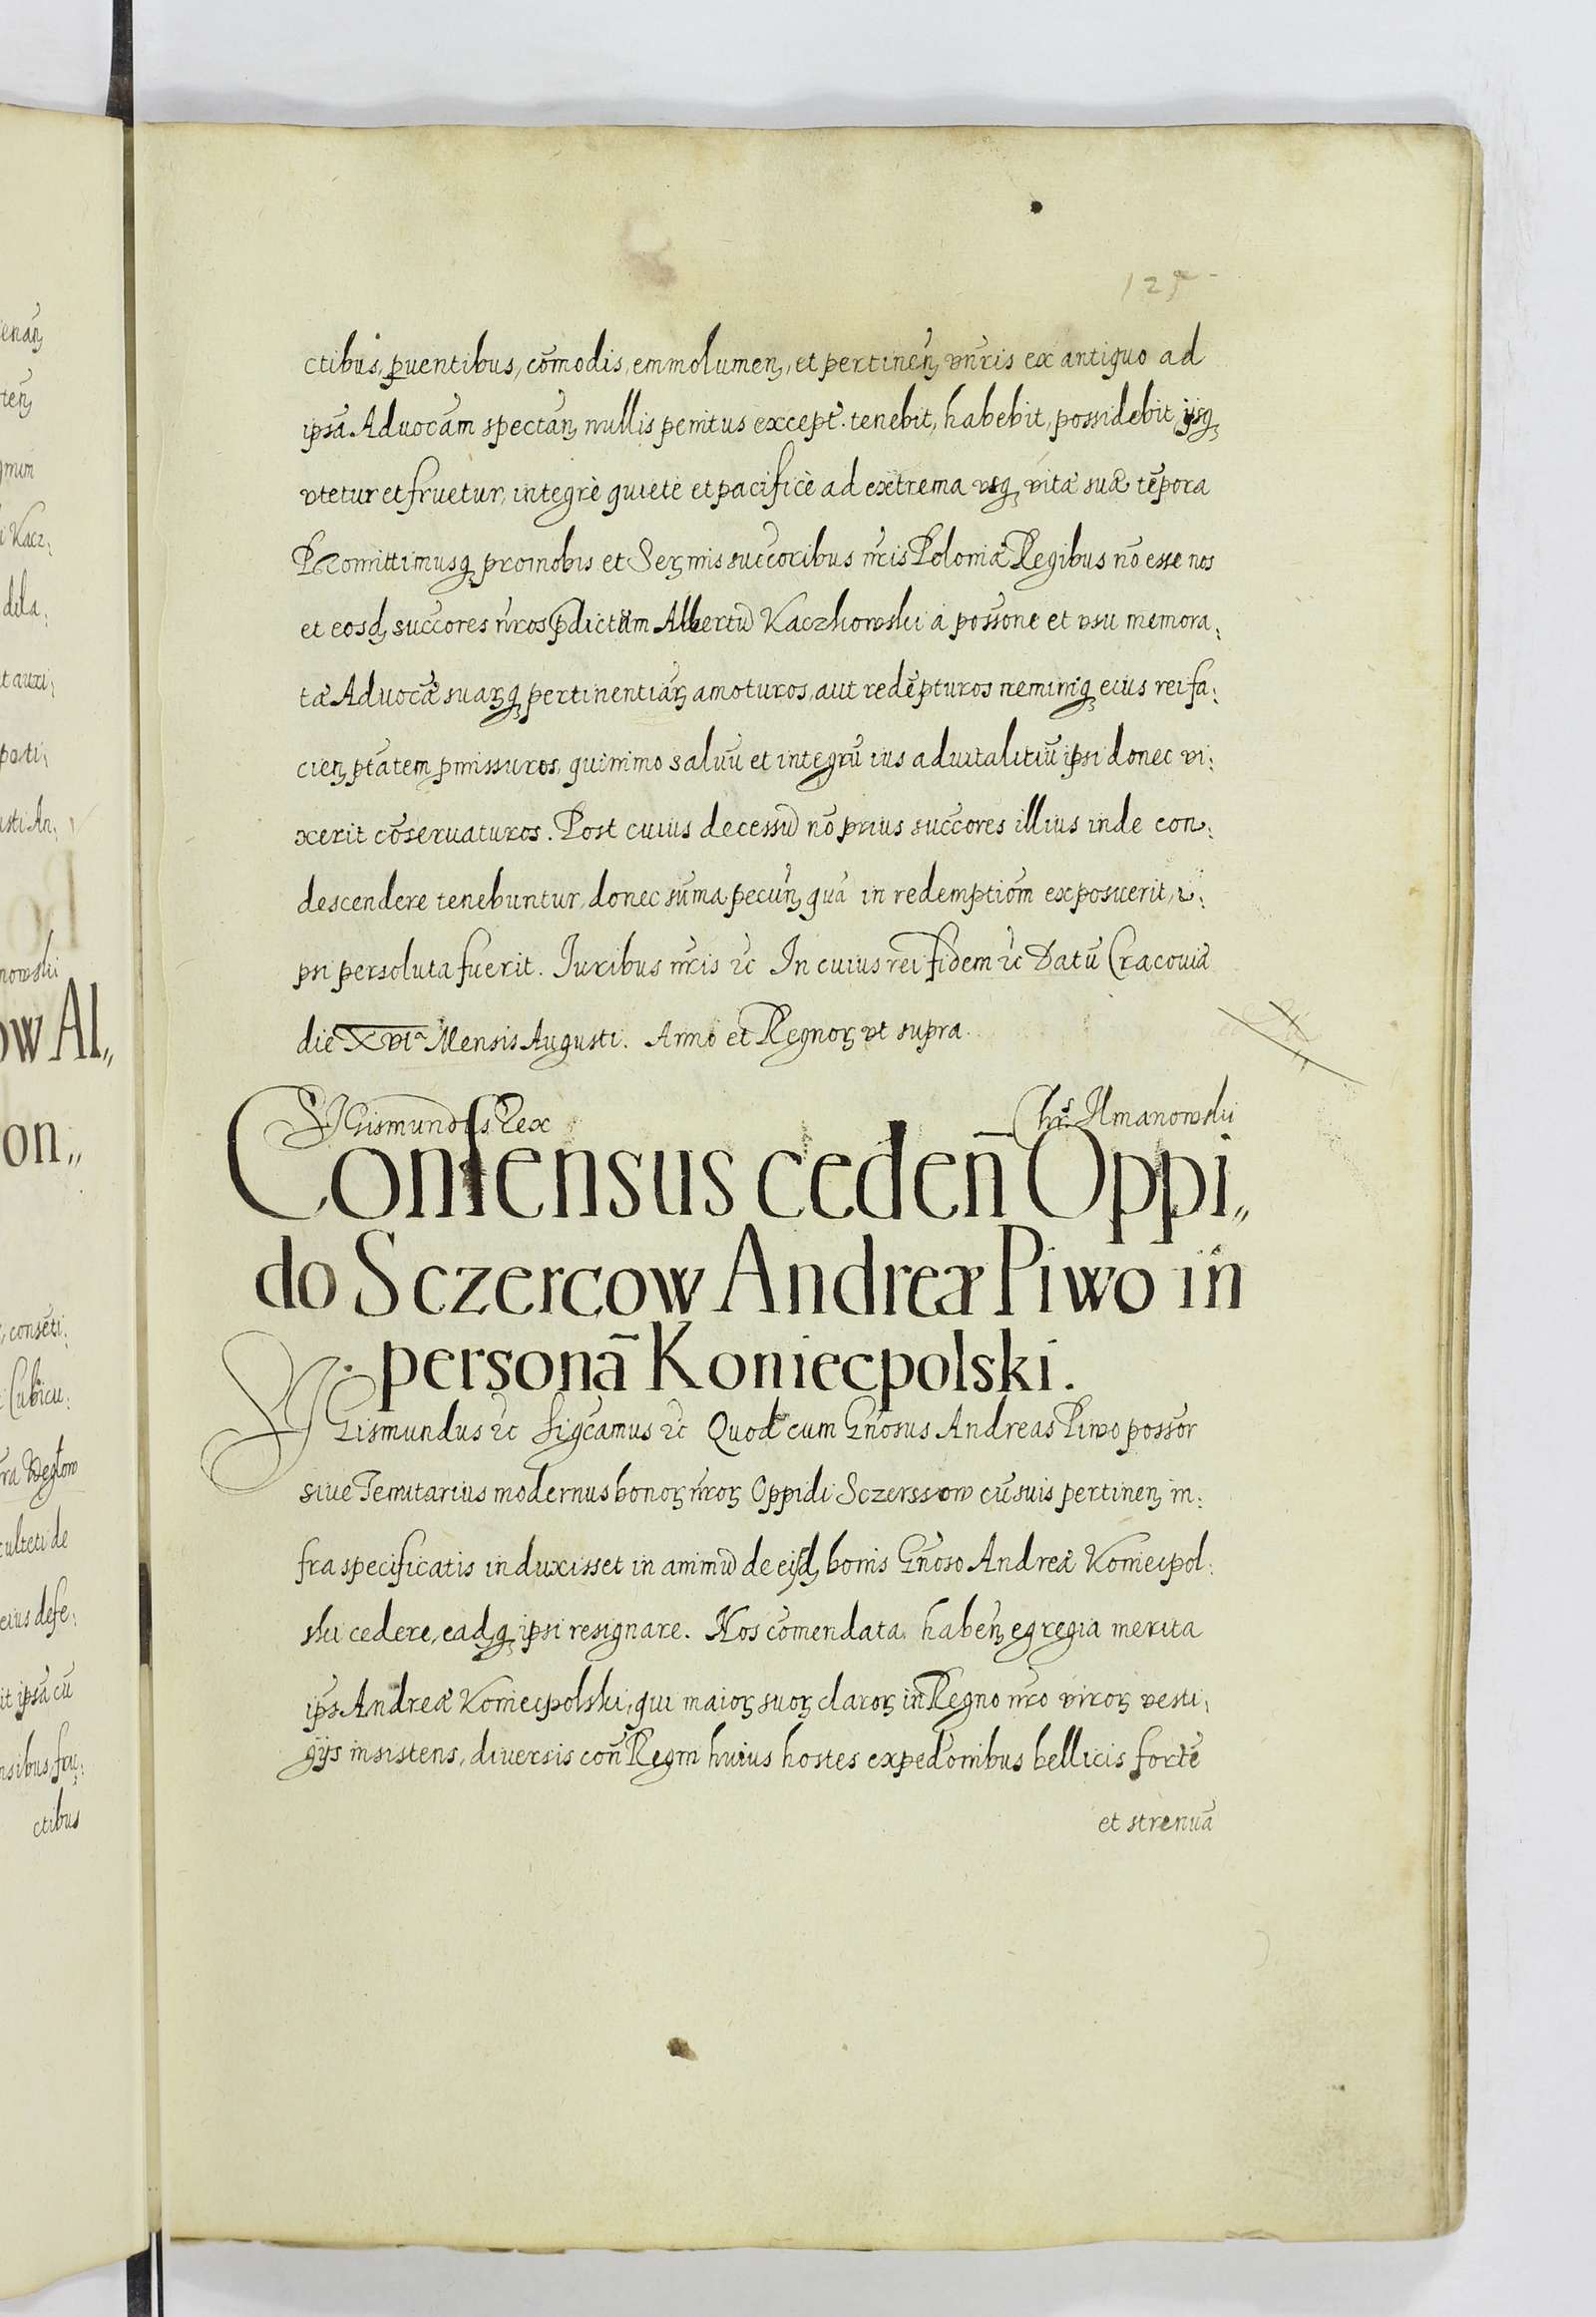 125
ctibus, ꝑuentibus, cōmodis, emmolumen̄, et pertinen̄, vn̄ris ex antiquo ad
ipsā Aduocām spectan̄, nullis penitus except. tenebit, habebit, possidebit, ijsq̄
vtetur et fruetur, integrè quietè et pacificè ad extrema vsq̄ vitæ suæ tēpora
Promittimusq̄ pro nobis et Sermis succoribus nr̄is Poloniæ Regibus nō esse nos
et eosd̄, succores nr̄os p̄dictum Albertū Kaczkowski à possone et vsu memora,
tæ Aduocæ suarq̄ pertinentiar̄, amoturos, aut redēpturos neminiq̄ eius rei fa,
cien̄ ptatem ꝑmissuros, quinimo saluū et integrū ius aduitalitiū ipsi donec vi,
xerit cōseruaturos. Post cuius decessū nō prius succores illius inde con,
descendere tenebuntur, donec sūma pecun̄, quā in redemptiom exposuerit, i,
psi persoluta fuerit. Iuribus nr̄is ꝛc In cuius rei fidem ꝛc Datū Cracouiæ
die XVIa Mensis Augusti. Anno et Regnoꝝ vt supra.
SIGismundus Rex
Chrs Ilmanowski
Consensus ceden̄ Oppi,,
do Sczercow Andreæ Piwo in
personā Koniecpolski.
SIGismundus ꝛc Sigcamus ꝛc Quod cum Gn̄osus Andreas Piwo possor
siue Tenutarius modernus bonoꝝ nr̄oꝝ Oppidi Sczerssow cū suis pertinen̄, in,
fra specificatis induxisset in animū de eijsd̄, bonis Gn̄oso Andreæ Koniecpol,
ski cedere, eadq̄ ipsi resignare. Nos cōmendata haben̄, egregia merita
ips Andreæ Koniecpolski, qui maioꝝ suoꝝ claroꝝ in Regno nr̄o viroꝝ vesti,
gijs insistens, diuersis con̄ Regni huius hostes expedonibus bellicis fortē
et strenuā